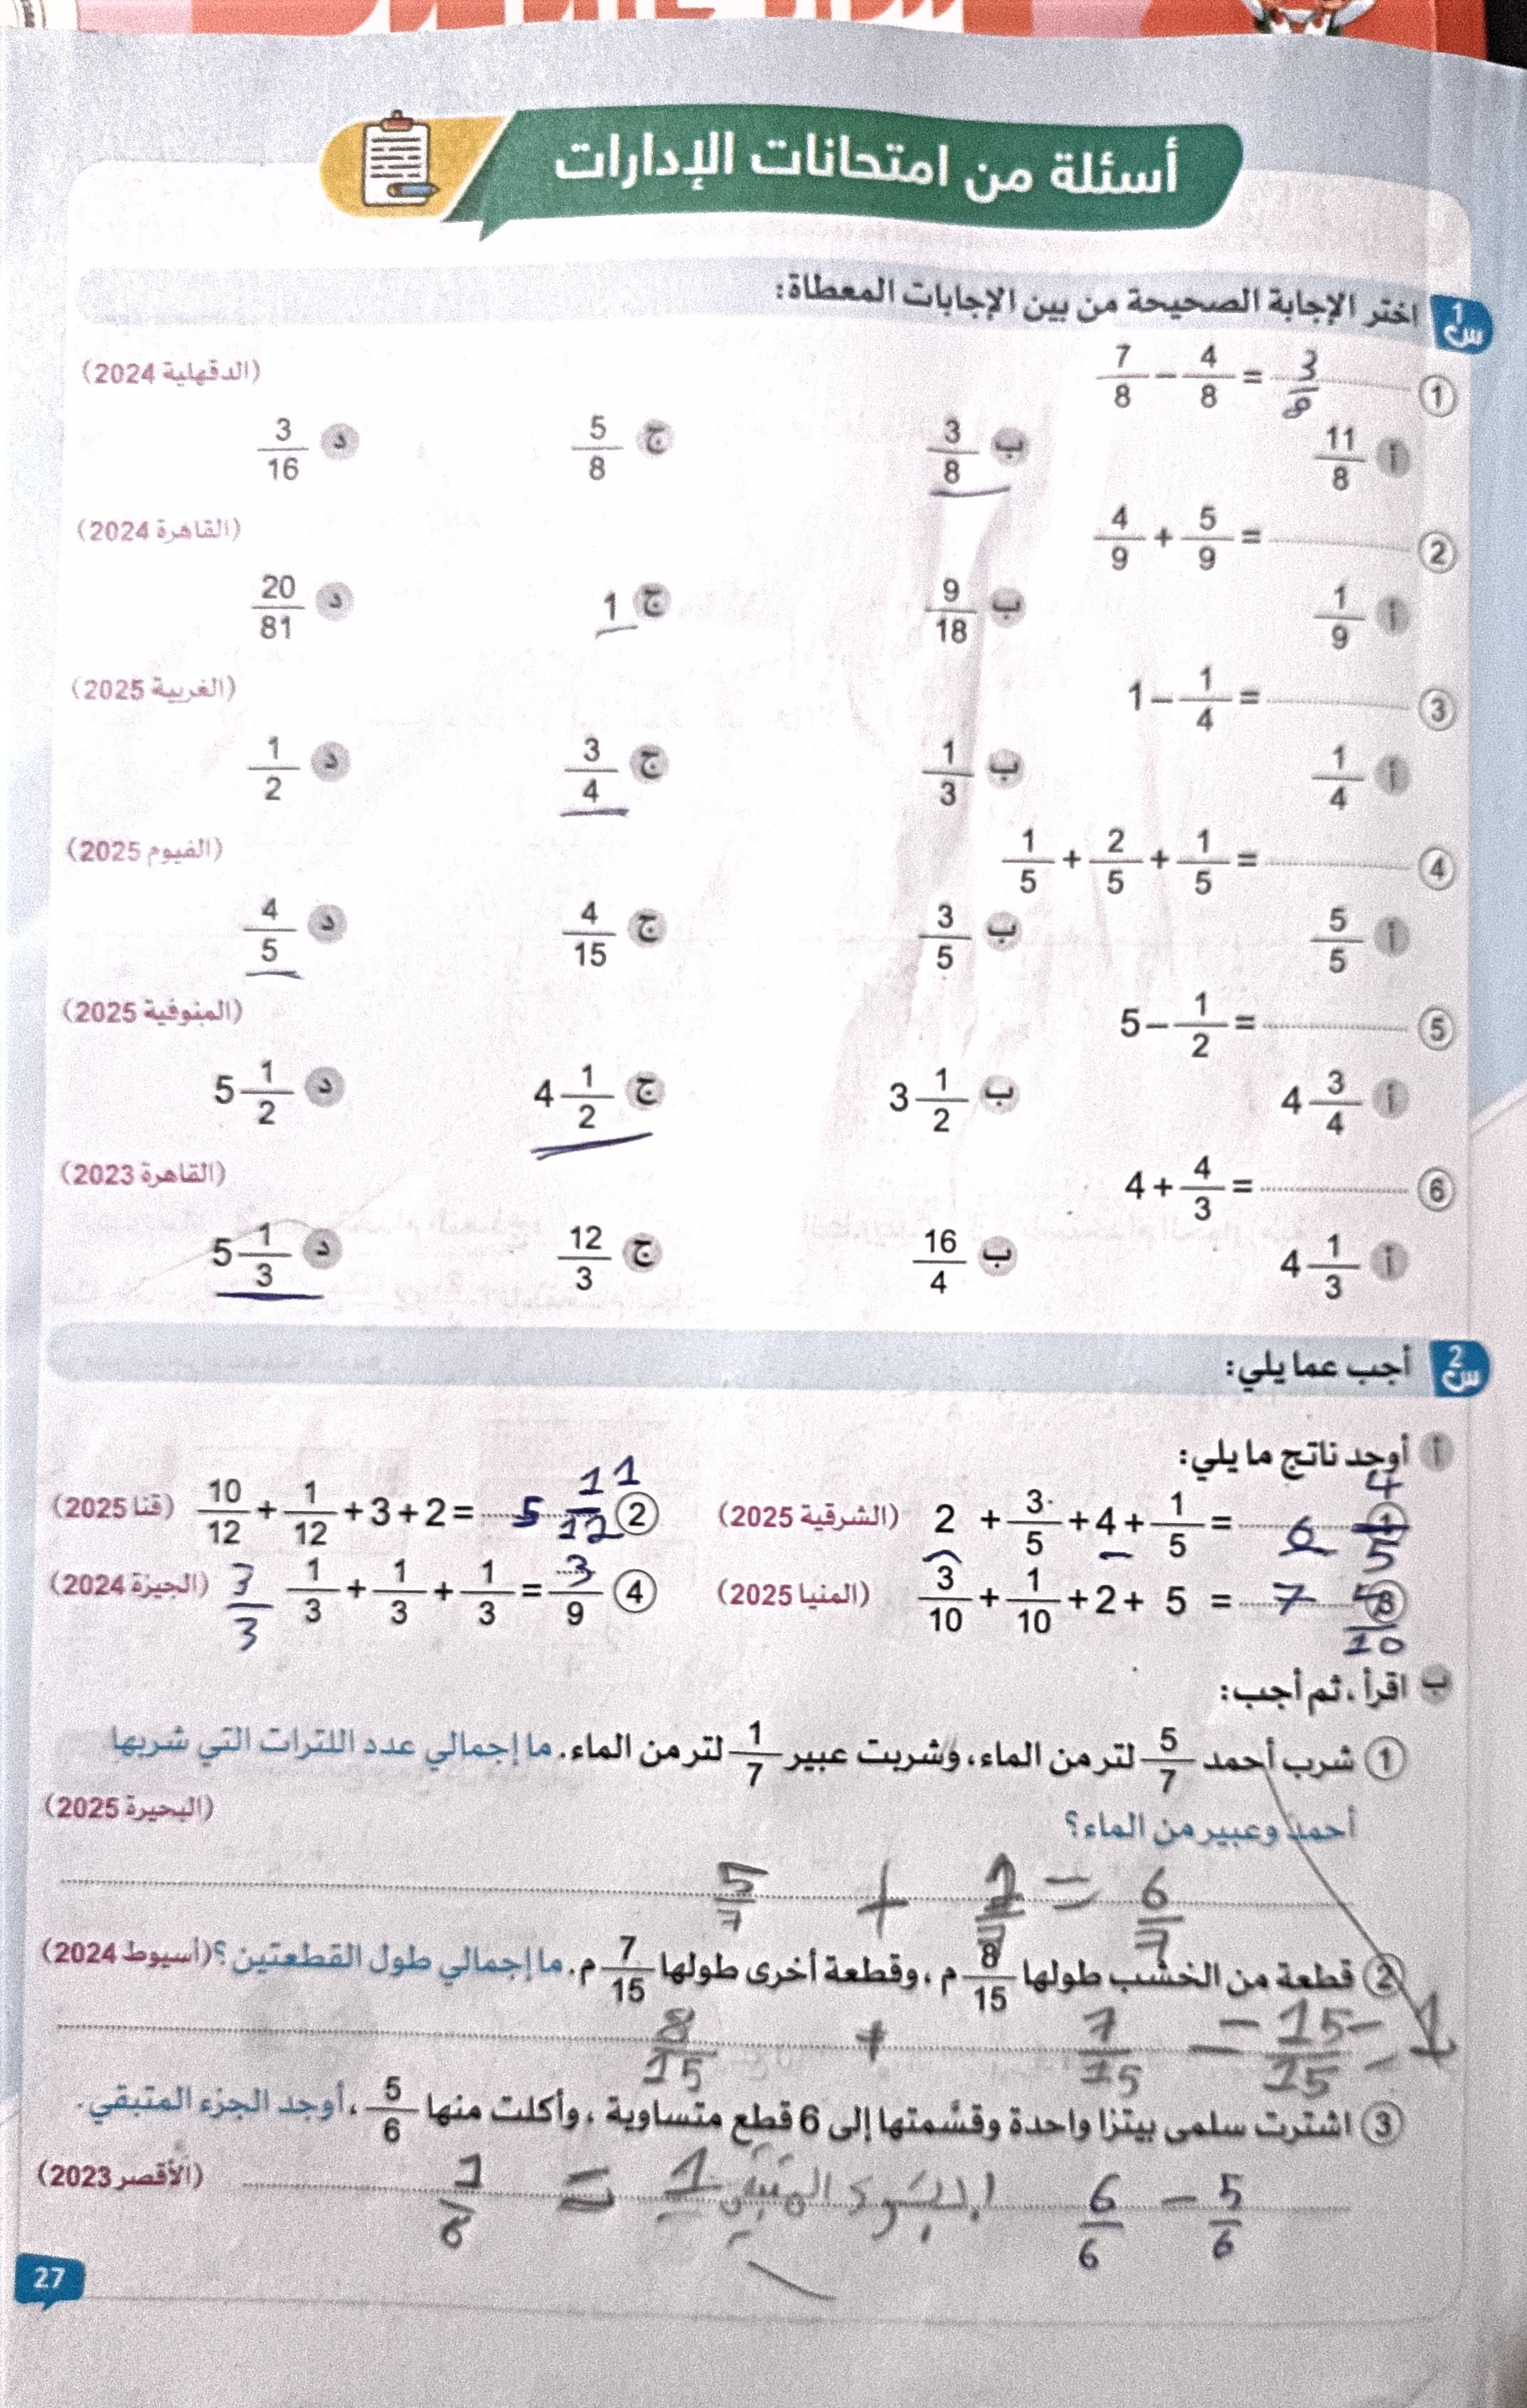 أسئلة من امتحانات الإدارات
س1 اختر الإجابة الصحيحة من بين الإجابات المعطاة:
① 7/8 − 4/8 = 3/8 (الدقهلية 2024)
أ 11/8 ب 3/8 ج 5/8 د 3/16
② 4/9 + 5/9 = (القاهرة 2024)
أ 1/9 ب 9/18 ج 1 د 20/81
③ 1 − 1/4 = (الغربية 2025)
أ 1/4 ب 1/3 ج 3/4 د 1/2
④ 1/5 + 2/5 + 1/5 = (الفيوم 2025)
أ 5/5 ب 3/5 ج 4/15 د 4/5
⑤ 5 − 1/2 = (المنوفية 2025)
أ 4 3/4 ب 3 1/2 ج 4 1/2 د 5 1/2
⑥ 4 + 4/3 = (القاهرة 2023)
أ 4 1/3 ب 16/4 ج 12/3 د 5 1/3
س2 أجب عما يلي:
أ أوجد ناتج ما يلي:
① 2 + 3/5 + 4 + 1/5 = 6 4/5 (الشرقية 2025) ② 10/12 + 1/12 + 3 + 2 = 5 11/12 (قنا 2025)
③ 3/10 + 1/10 + 2 + 5 = 7 /10 (المنيا 2025) ④ 1/3 + 1/3 + 1/3 = 3/9 3/3 (الجيزة 2024)
ب اقرأ، ثم أجب:
① شرب أحمد 5/7 لتر من الماء، وشربت عبير 1/7 لتر من الماء. ما إجمالي عدد اللترات التي شربها
أحمد وعبير من الماء؟ (البحيرة 2025)
5/7 + 1/7 = 6/7
② قطعة من الخشب طولها 8/15 م، وقطعة أخرى طولها 7/15 م. ما إجمالي طول القطعتين؟ (أسيوط 2024)
8/15 + 7/15 = 15/15 = 1
③ اشترت سلمى بيتزا واحدة وقسَّمتها إلى 6 قطع متساوية، وأكلت منها 5/6، أوجد الجزء المتبقي.
(الأقصر 2023)
6/6 − 5/6 المتبقي = 1/6
27